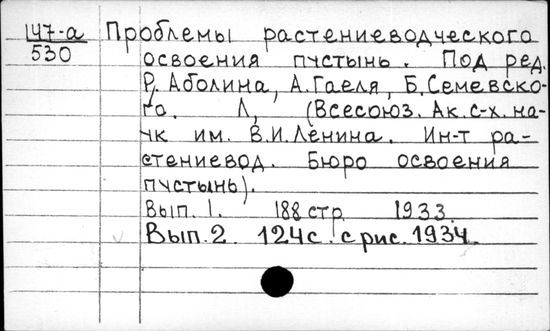 147-а Проблемы растениеводческого
530 освоения пустынь. Под ред.
Р. Аболина, А. Гаеля, Б. Семевско-
го. Л, (Всесоюз. Ак. с-х. на-
ук им. В.И. Ленина. Ин-т ра-
стениевод. Бюро освоения
пустынь).
Вып. 1. 188 стр 1933.
Вып. 2. 124 с. с рис. 1934.